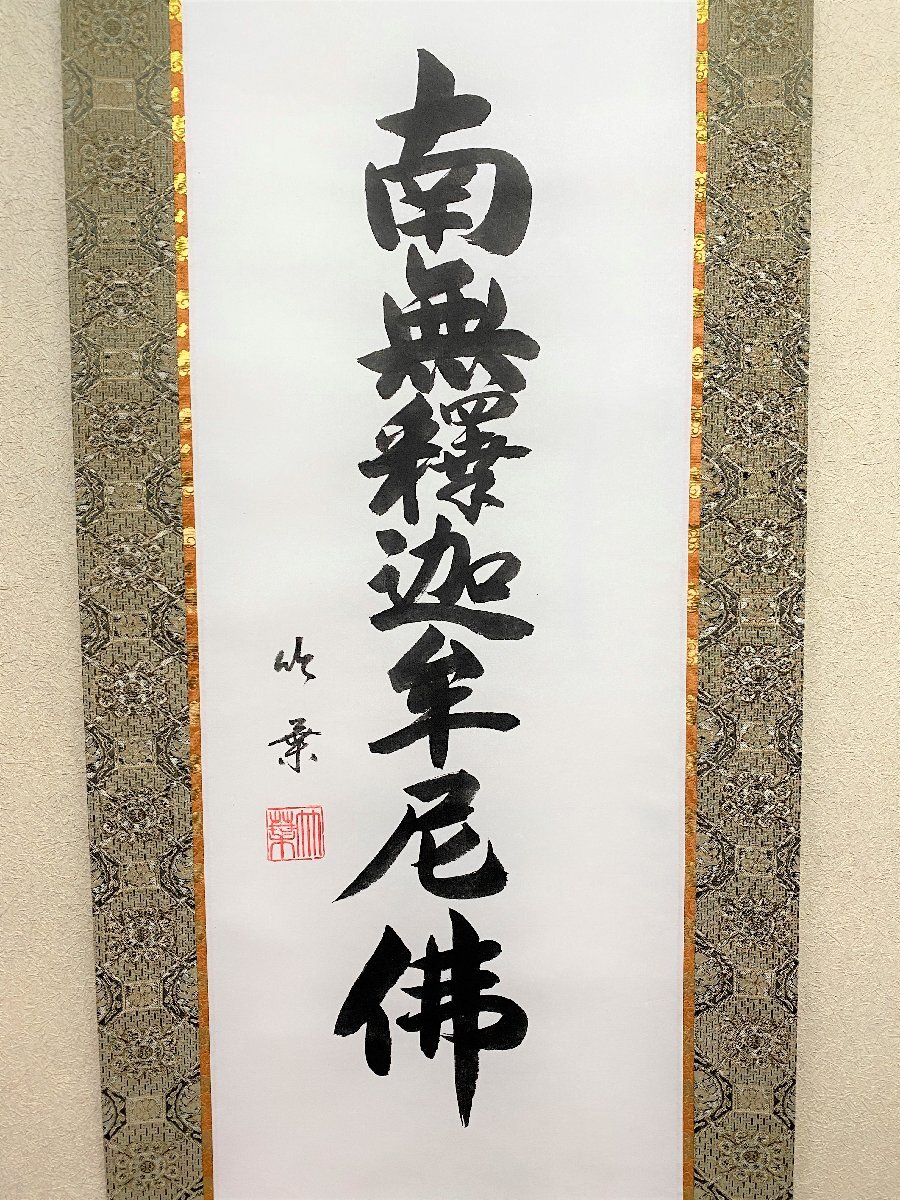 南無釋迦牟尼佛
竹葉
竹葉